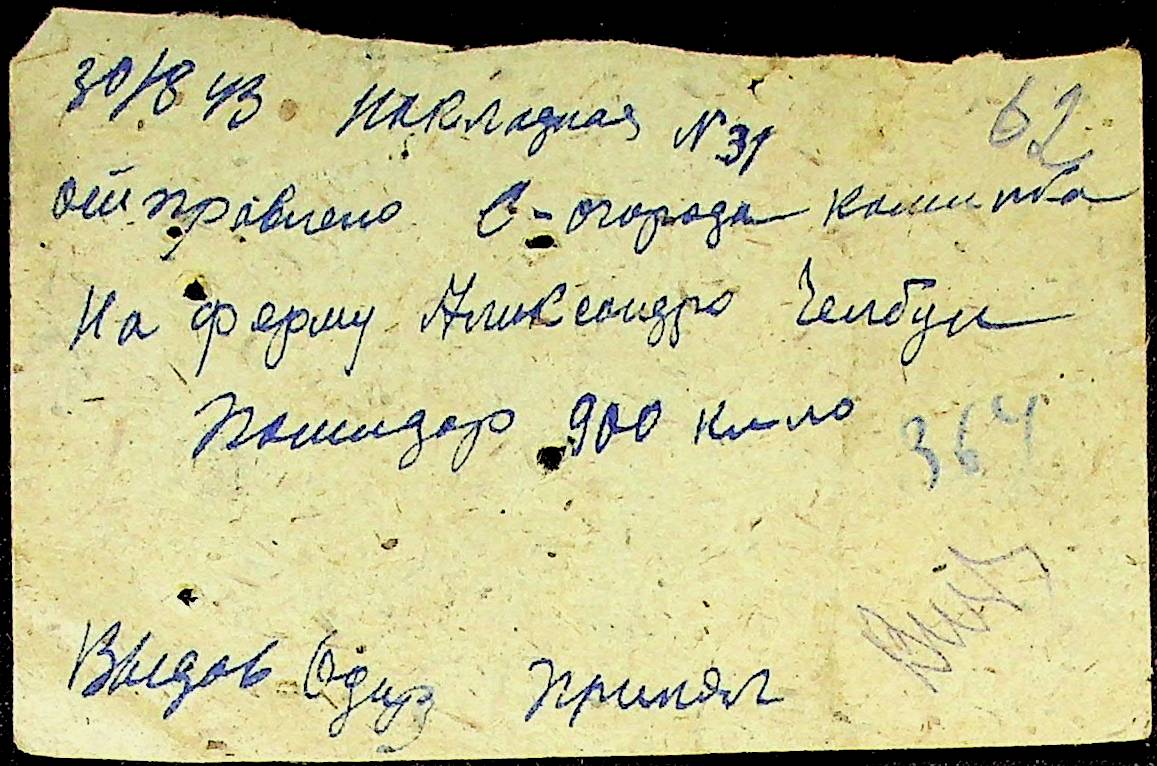 30/8 43 Накладная N 31 62
Отправлено С-огорода
На ферму Александра Челбун
Помидор 900 кило
364
Выдав Принял